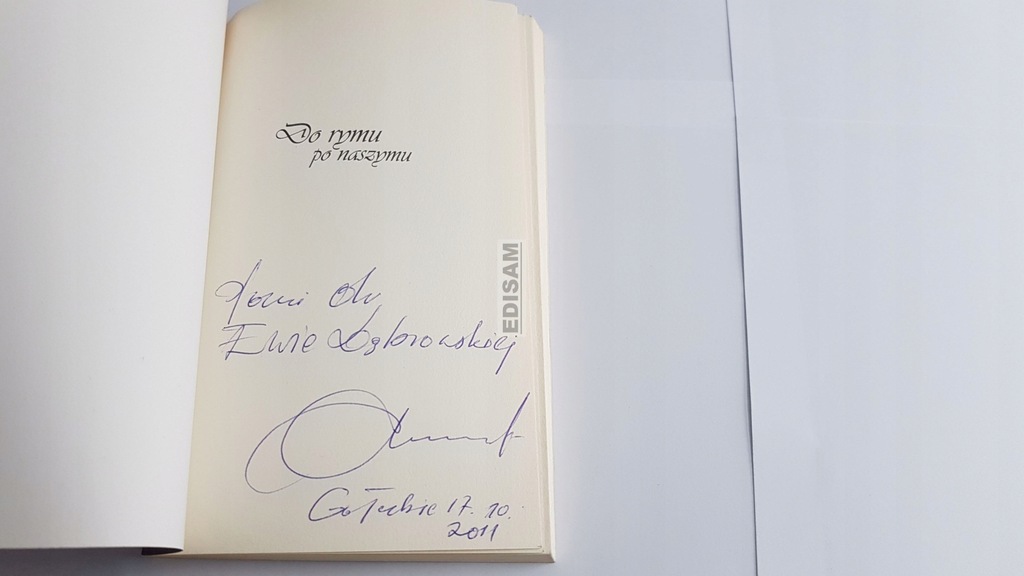 Do rymu
po naszymu
EDISAM
Pani
Ewie Dąbrowskiej
Gołubie 17.10.
2011